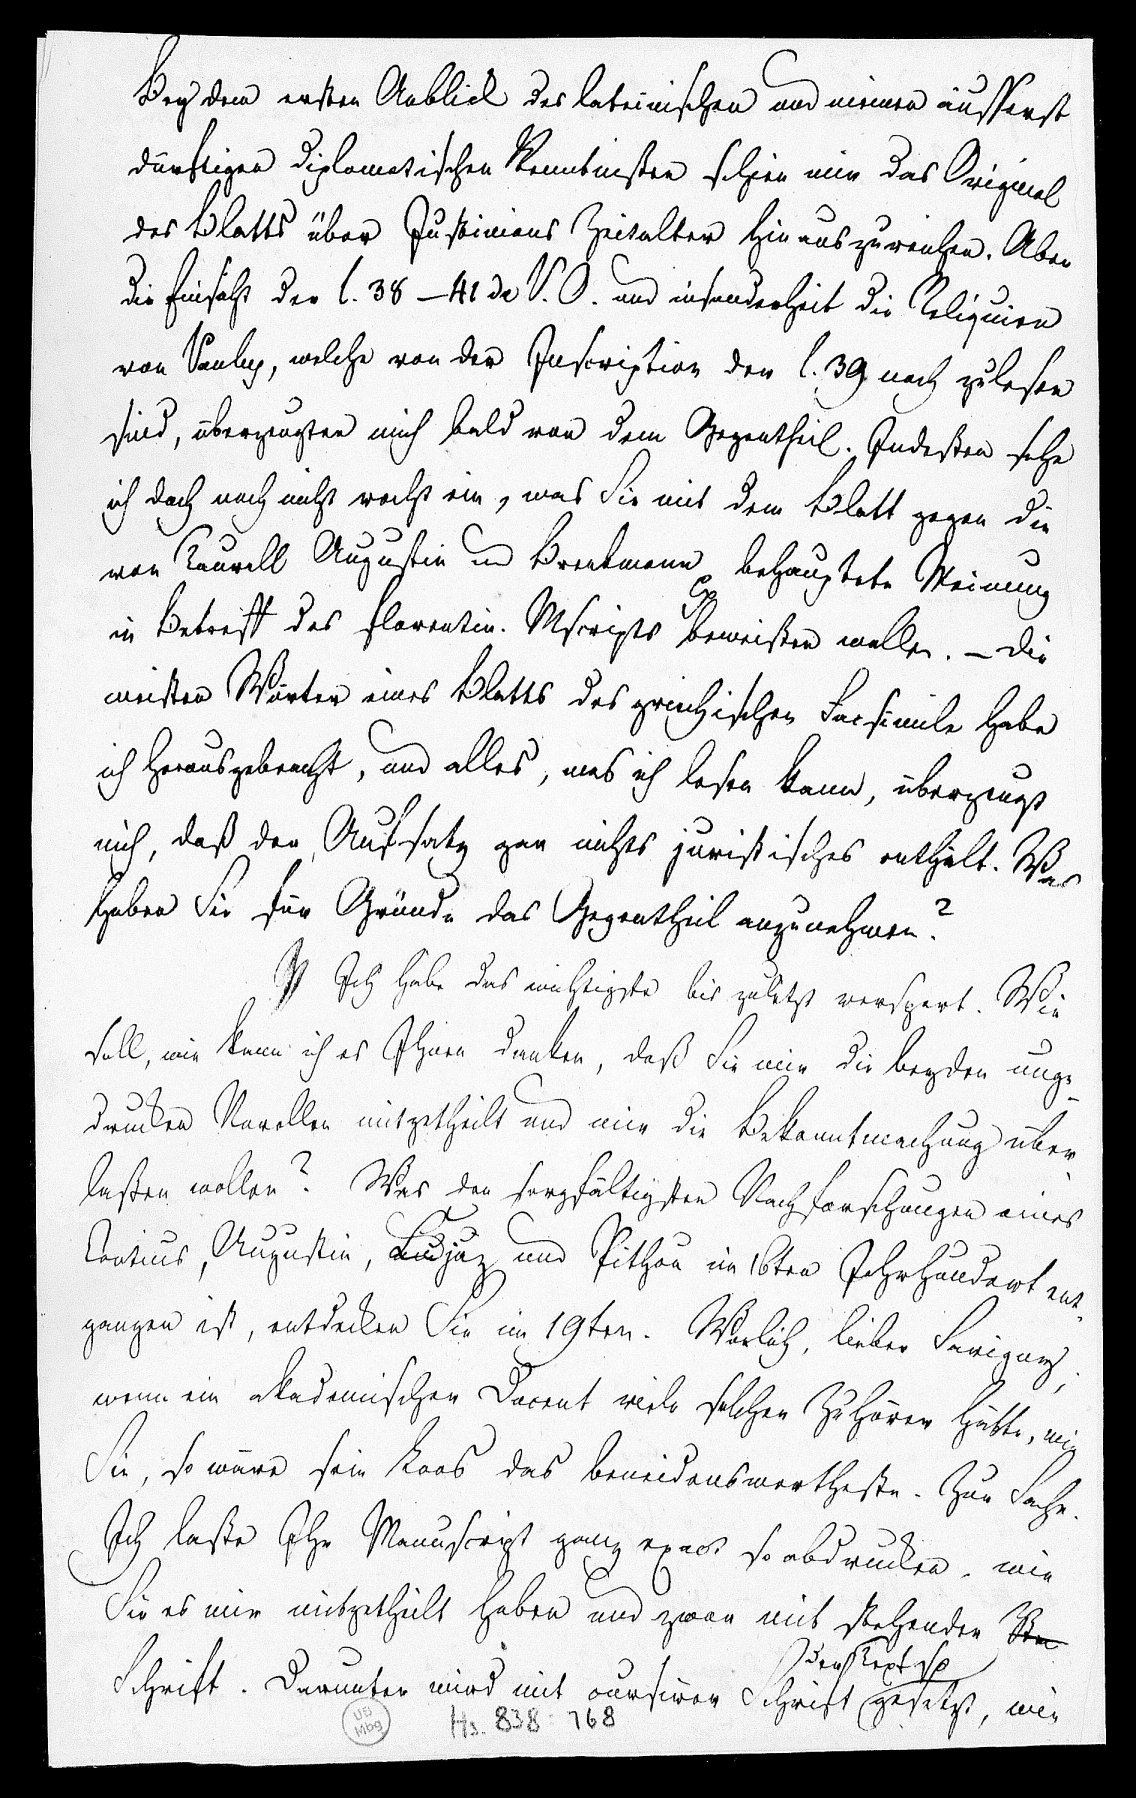 Bey dem ersten Anblick des lateinischen und meinen äusserst
dürftigen diplomatischen Kenntnißen schien mir das Original
des Blatts über Justinians Zeitalter hinauszureichen. Aber
die Einsicht der l. 38 – 41 de V. O. und insonderheit die Reliquien
von Paulus, welche von der Inscription der l. 39 noch zu lesen
sind, überzeugten mich bald von dem Gegentheil. Indeßen sehe
ich doch noch nicht recht ein, was Sie mit dem Blatt gegen die
von Taurell Augustin und Brenkmann behauptete Meinung
in Betreff des florentin. Mscripts beweisen wollen. – Die
meisten Wörter eines Blatts des griechischen Facsimile habe
ich herausgebracht, und alles, was ich lesen kann, überzeugt
mich, daß der Aufsatz gar nichts juristisches enthält. Was
haben Sie für Gründe das Gegentheil anzunehmen?
Ich habe das wichtigste bis zuletzt verspart. Wie
soll, wie kann ich es Ihnen danken, daß Sie mir die beyden unge-
druckten Novellen mitgetheilt und mir die Bekanntmachung über-
laßen wollen? Was den sorgfältigsten Nachforschungen eines
Contius, Augustin, Cujaz und Pithou im 16ten Jahrhundert ent-
gangen ist, entdecken Sie im 19ten. Warlich, lieber Savigny,
wenn ein akademischer Docent viele solcher Zuhörer hätte, wie
Sie, so wäre sein Loos das beneidenswertheste. Zur Sache.
Ich laße Ihr Manuscript ganz exact so abdrucken, wie
Sie es mir mitgetheilt haben und zwar mit stehender
Schrift. Darunter wird mit cursiver Schrift der Text so gesetzt, wie
UB Mbg
Hs. 838 : 768